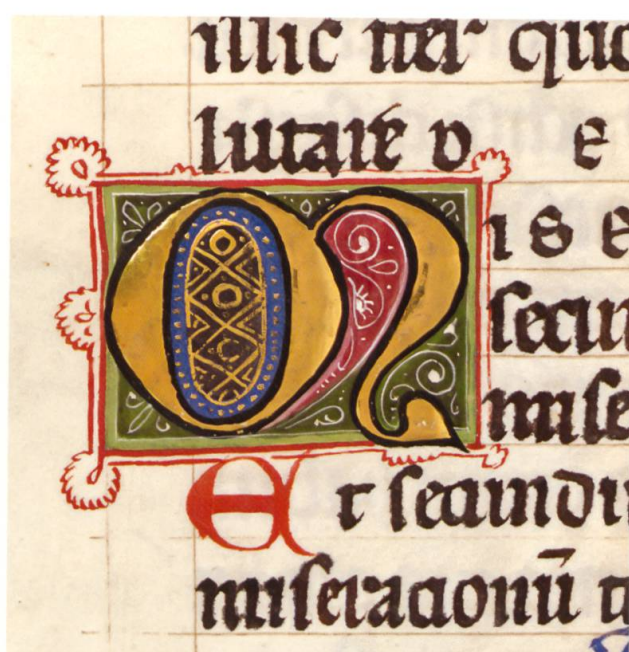 illic iter quo
lutare d e
MISE
secun
mise
Et secundu
miseracionū t